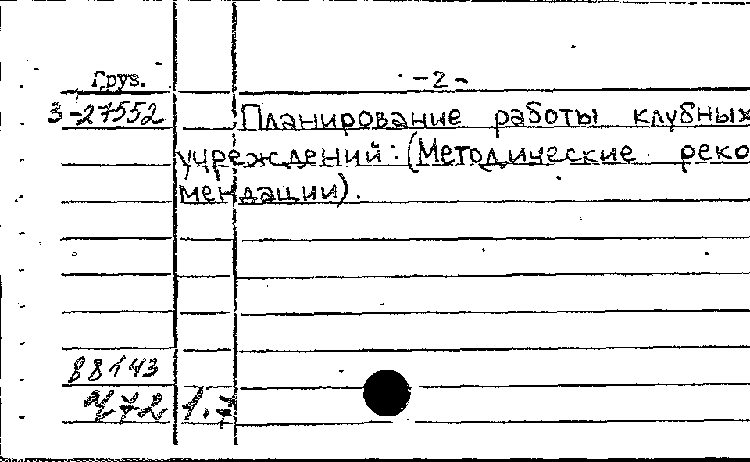 Груз. -2-
3-27552 Планирование работы клубных
учреждений: (Методические реко
мендации).
88143
472 1.7